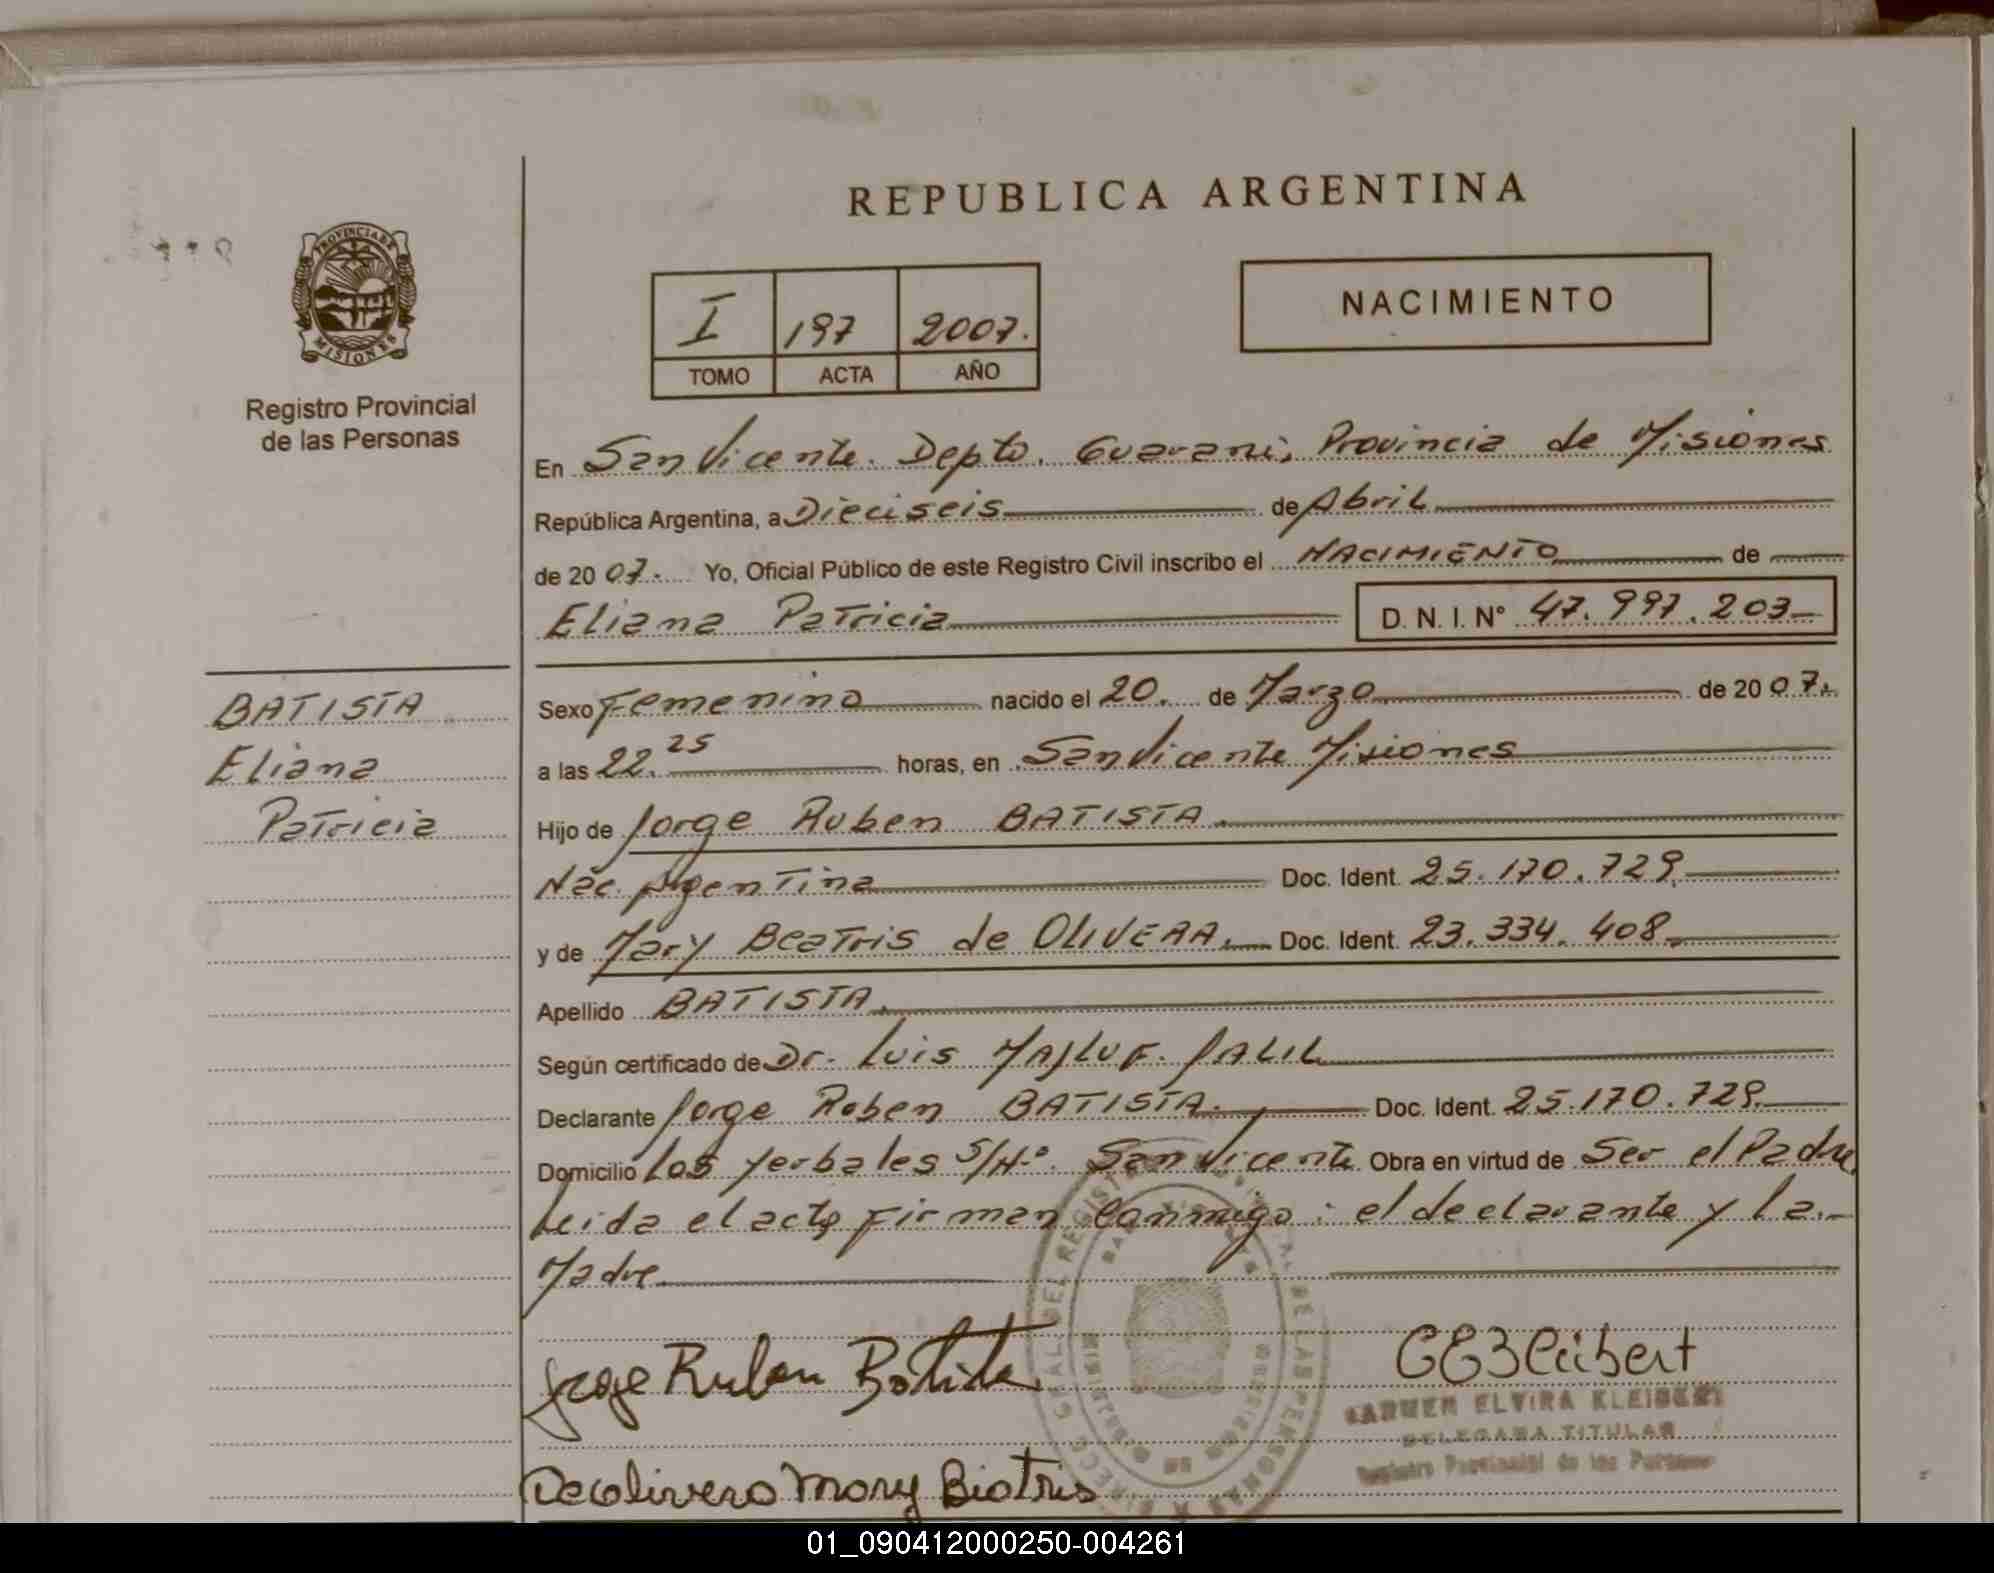 REPUBLICA ARGENTINA
PROVINCIA DE
MISIONES
Registro Provincial
de las Personas
I 197 2007.
TOMO ACTA AÑO
NACIMIENTO
En San Vicente. Depto. Guarani, Provincia de Misiones
República Argentina, a Dieciseis de Abril
de 2007. Yo, Oficial Público de este Registro Civil inscribo el NACIMIENTO de
Eliana Patricia D. N. I. N° 47.997.203
BATISTA
Eliana
Patricia
Sexo Femenino nacido el 20. de Marzo de 2007.
a las 22.25 horas, en San Vicente Misiones
Hijo de Jorge Ruben BATISTA.
Nac. Argentina Doc. Ident. 25.170.729.
y de Mary Beatris de OLIVERA. Doc. Ident. 23.334.408.
Apellido BATISTA.
Según certificado de Dr. Luis MAJLUF. JALIL
Declarante Jorge Ruben BATISTA. Doc. Ident. 25.170.729.
Domicilio Los Yerbales S/N.° San Vicente Obra en virtud de Ser el Padre
Leida el acta, firman conmigo: el declarante y la
Madre
Jorge Ruben Batista
CEKleibert
CARMEN ELVIRA KLEIBERT
DELEGADA TITULAR
Registro Provincial de las Personas
Decolivera Mary Biatris
01_090412000250-004261